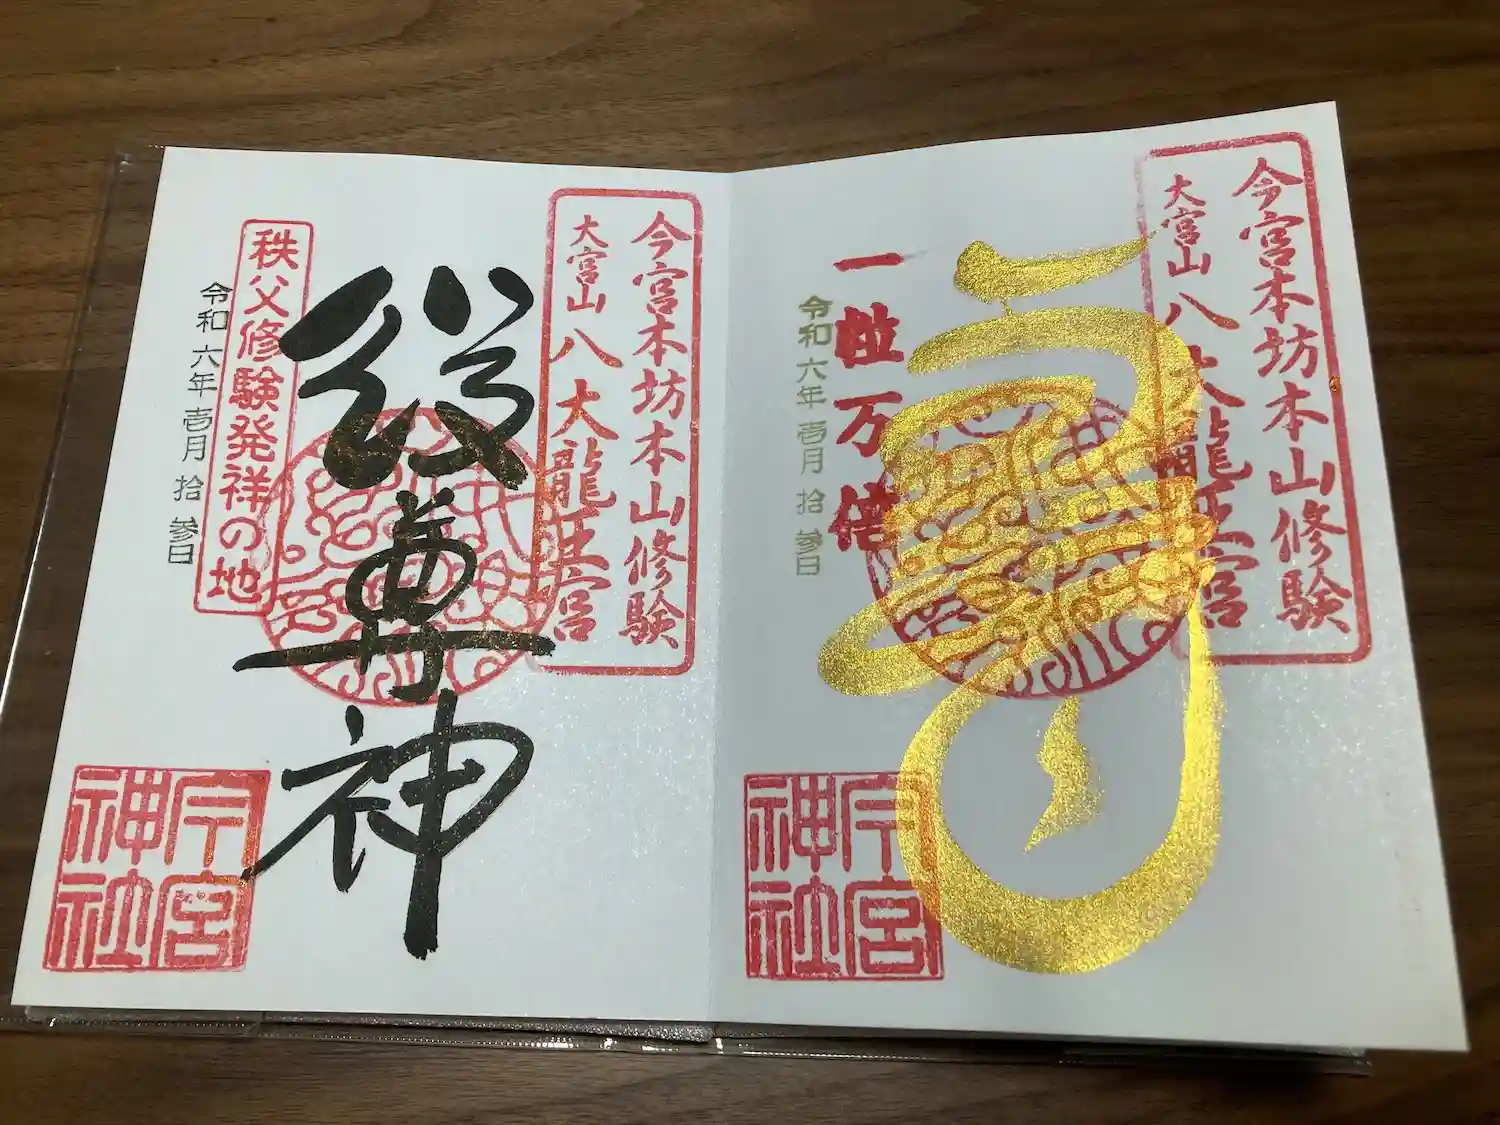 今宮本坊本山修験
大宮山 八大龍王宮
寿
一粒万倍
令和六年壱月拾参日
今宮神社
今宮本坊本山修験
大宮山 八大龍王宮
尊神
秩父修験発祥の地
令和六年壱月拾参日
今宮神社